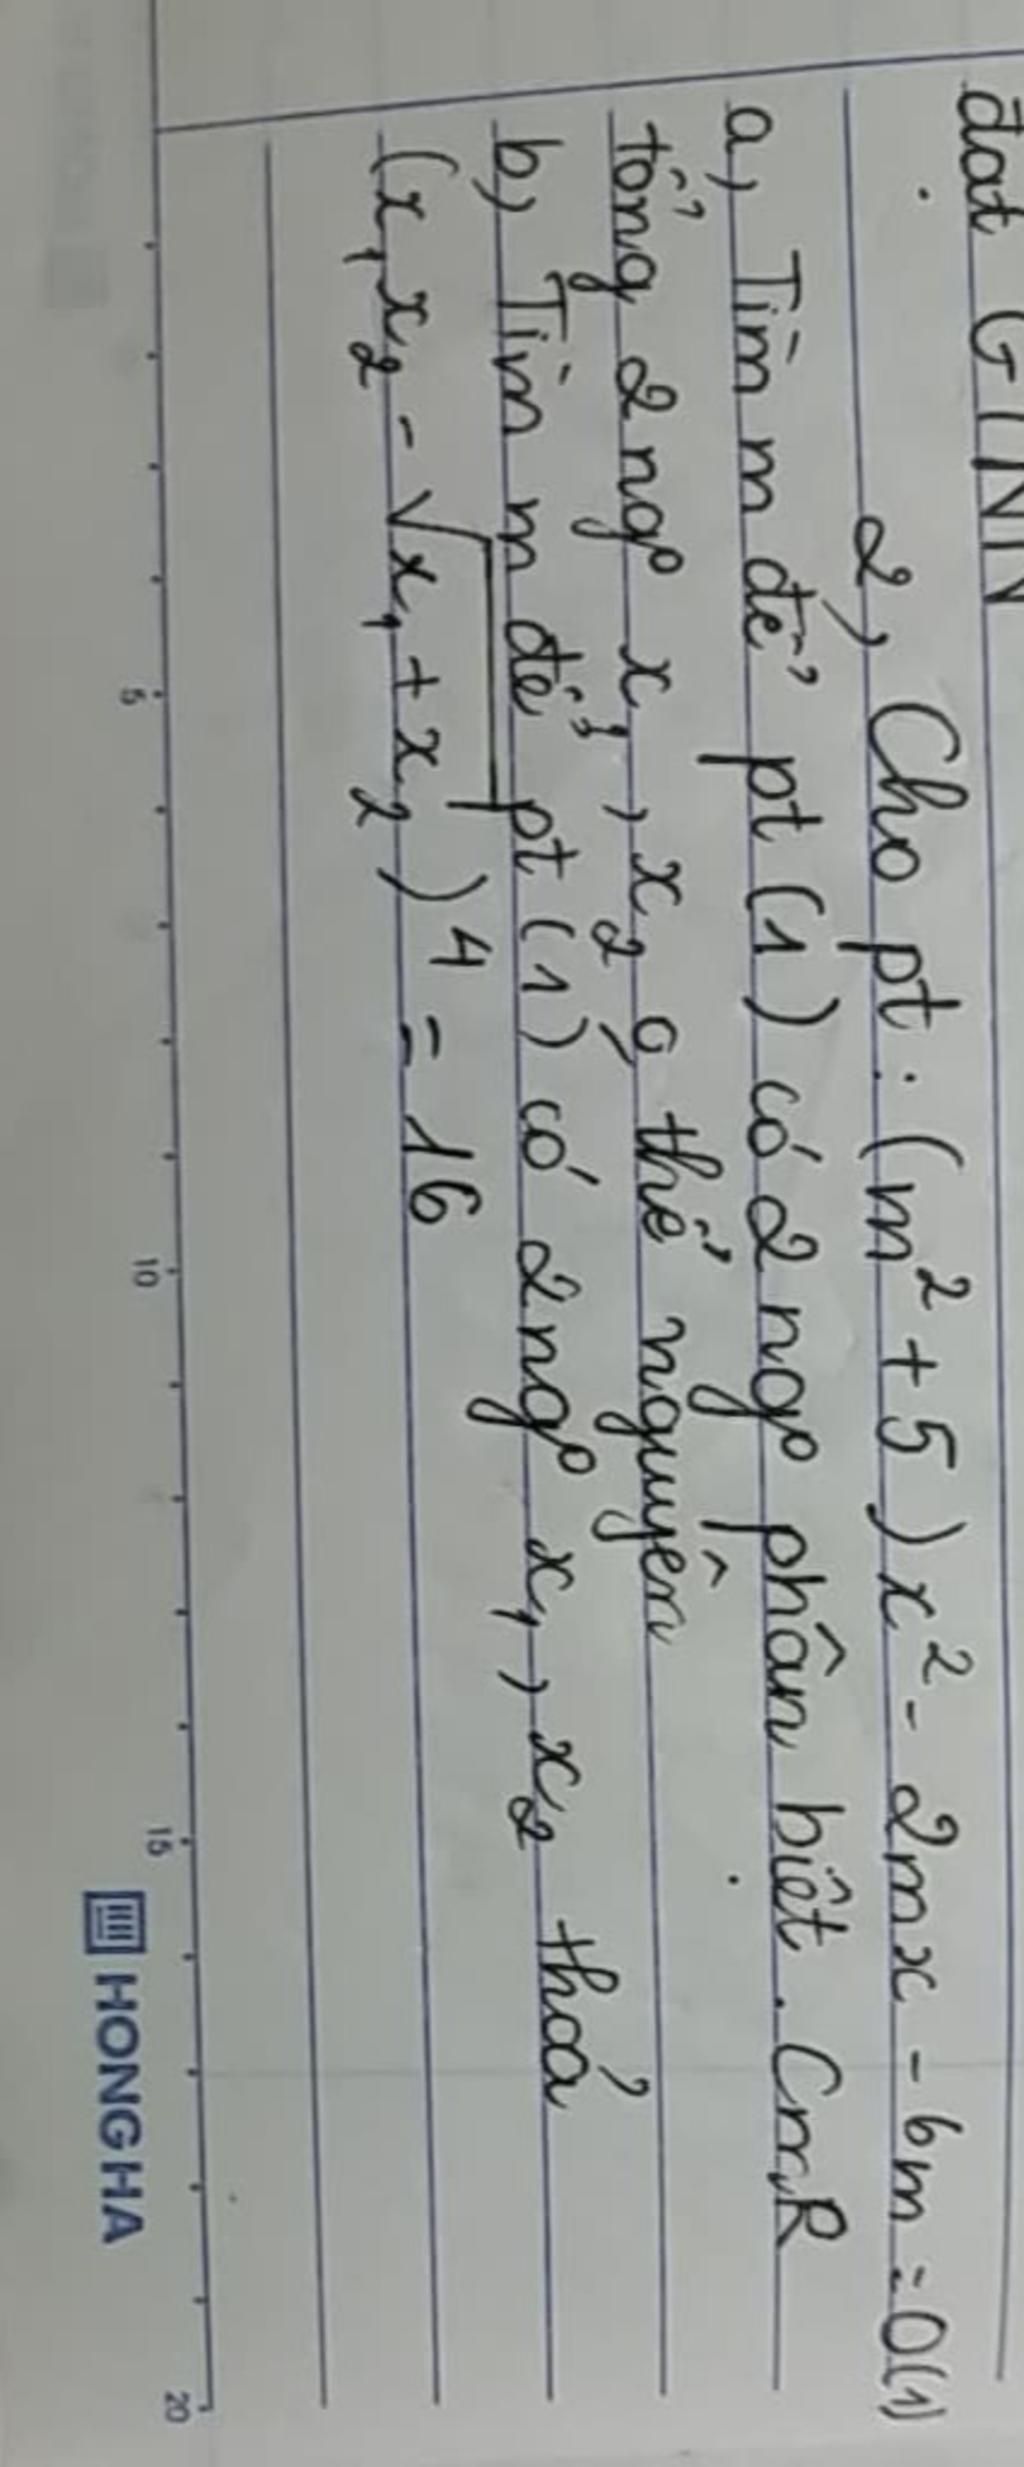 đạt GTNN
2, Cho pt: (m² + 5)x² - 2mx - 6m = 0 (1)
a, Tìm m để pt (1) có 2 ngo phân biệt. CmR
tổng 2 ngo x₁, x₂ o thể nguyên
b, Tìm m để pt (1) có 2 ngo x₁, x₂ thoả
(x₁x₂ - √x₁ + x₂)⁴ = 16
5 10 15 20
HONG HA